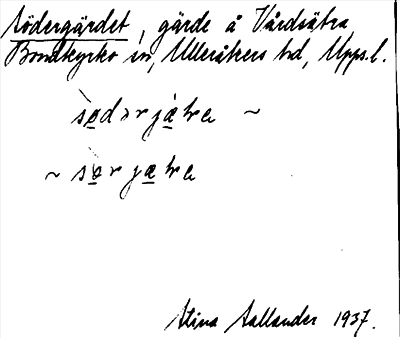 Södergärdet, gärde å Vårdsätra
Bondkyrko sn, Ulleråkers hd, Upps. l.
~
~
Stina Sallander 1937.